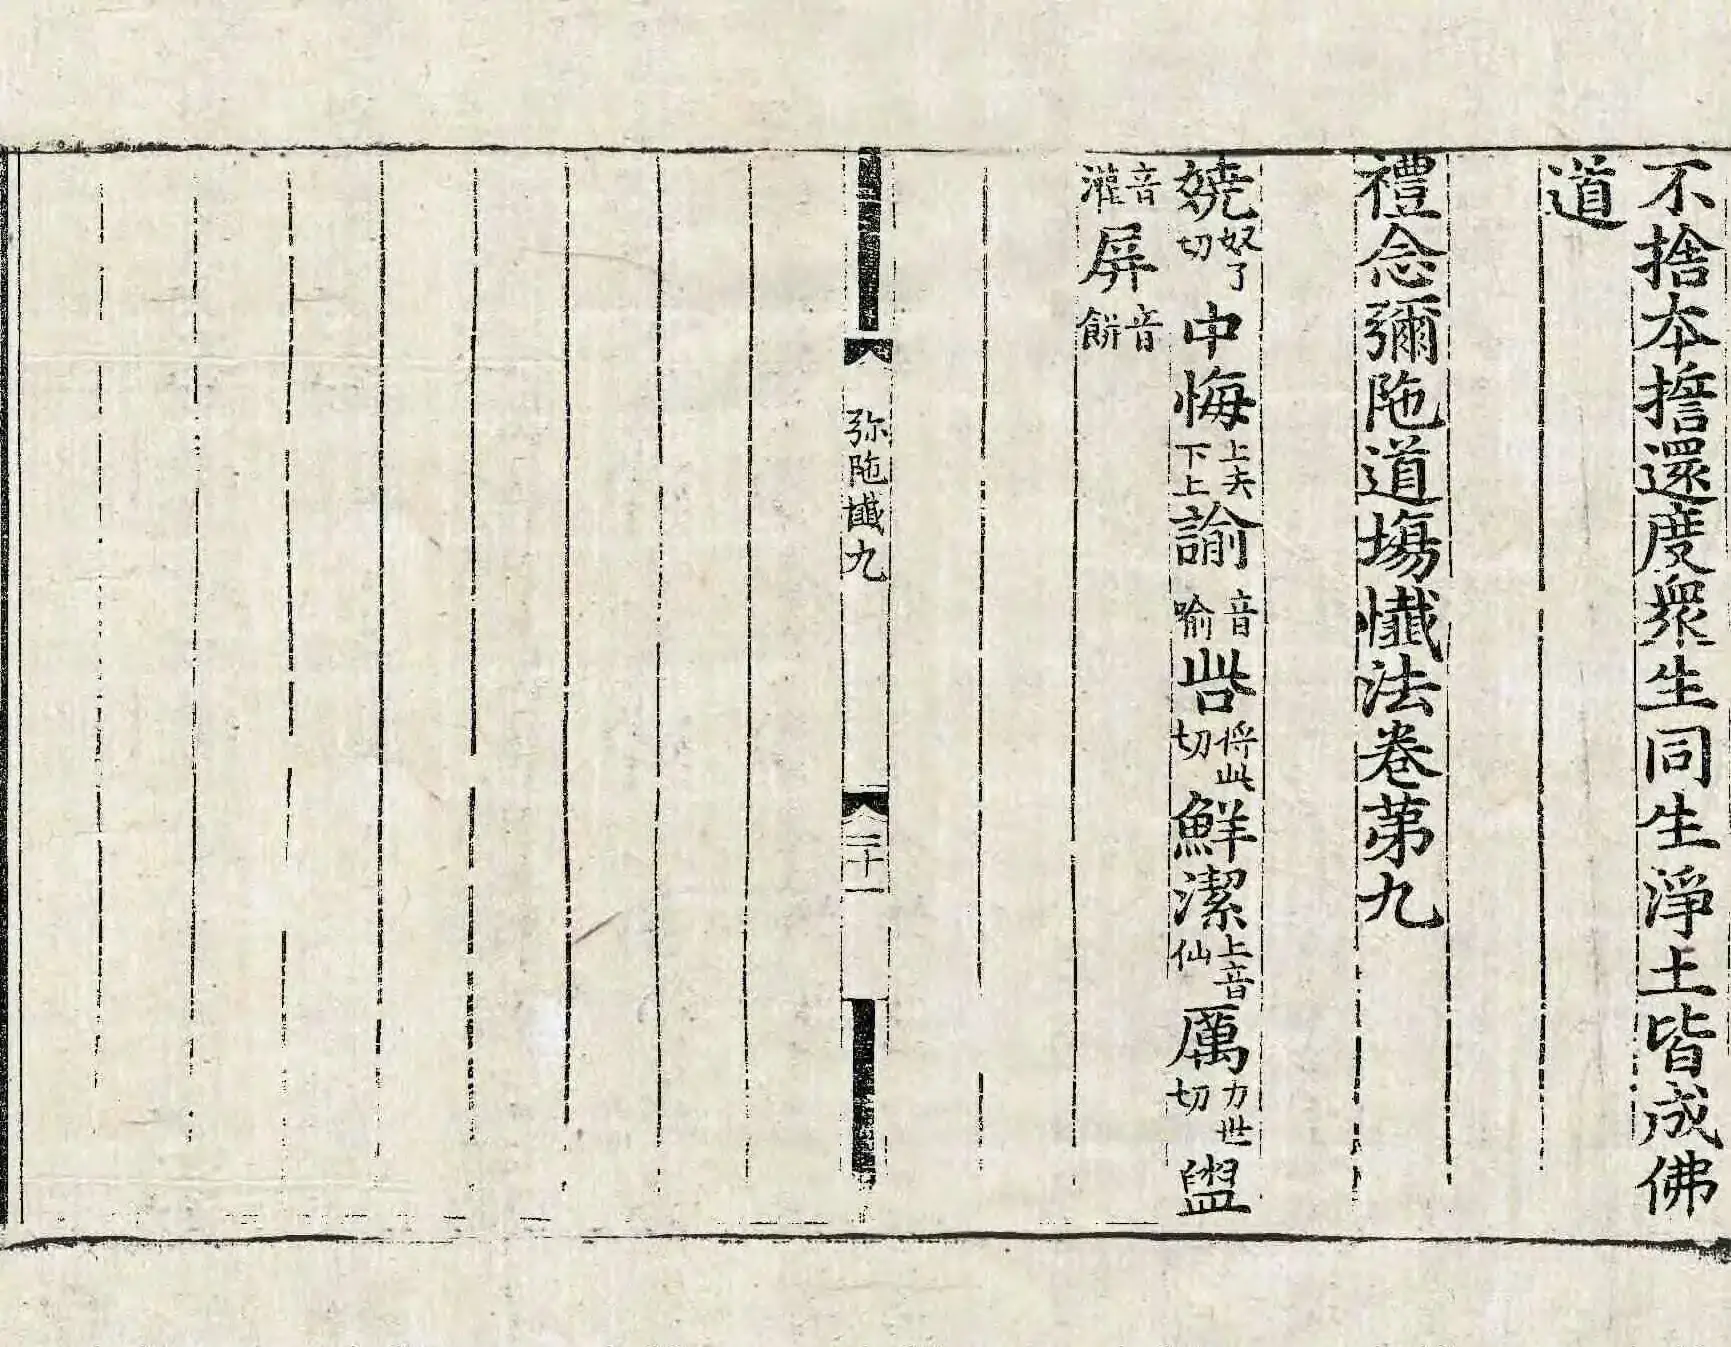 不捨本擔還度衆生同生淨土皆成佛
道
禮念彌陁道塲懺法卷苐九
嬈奴了切中悔上夫下上諭音喻呰将此切鮮潔上音仙厲力世切盥
音灌屏音餅
弥陁懺九
二十一